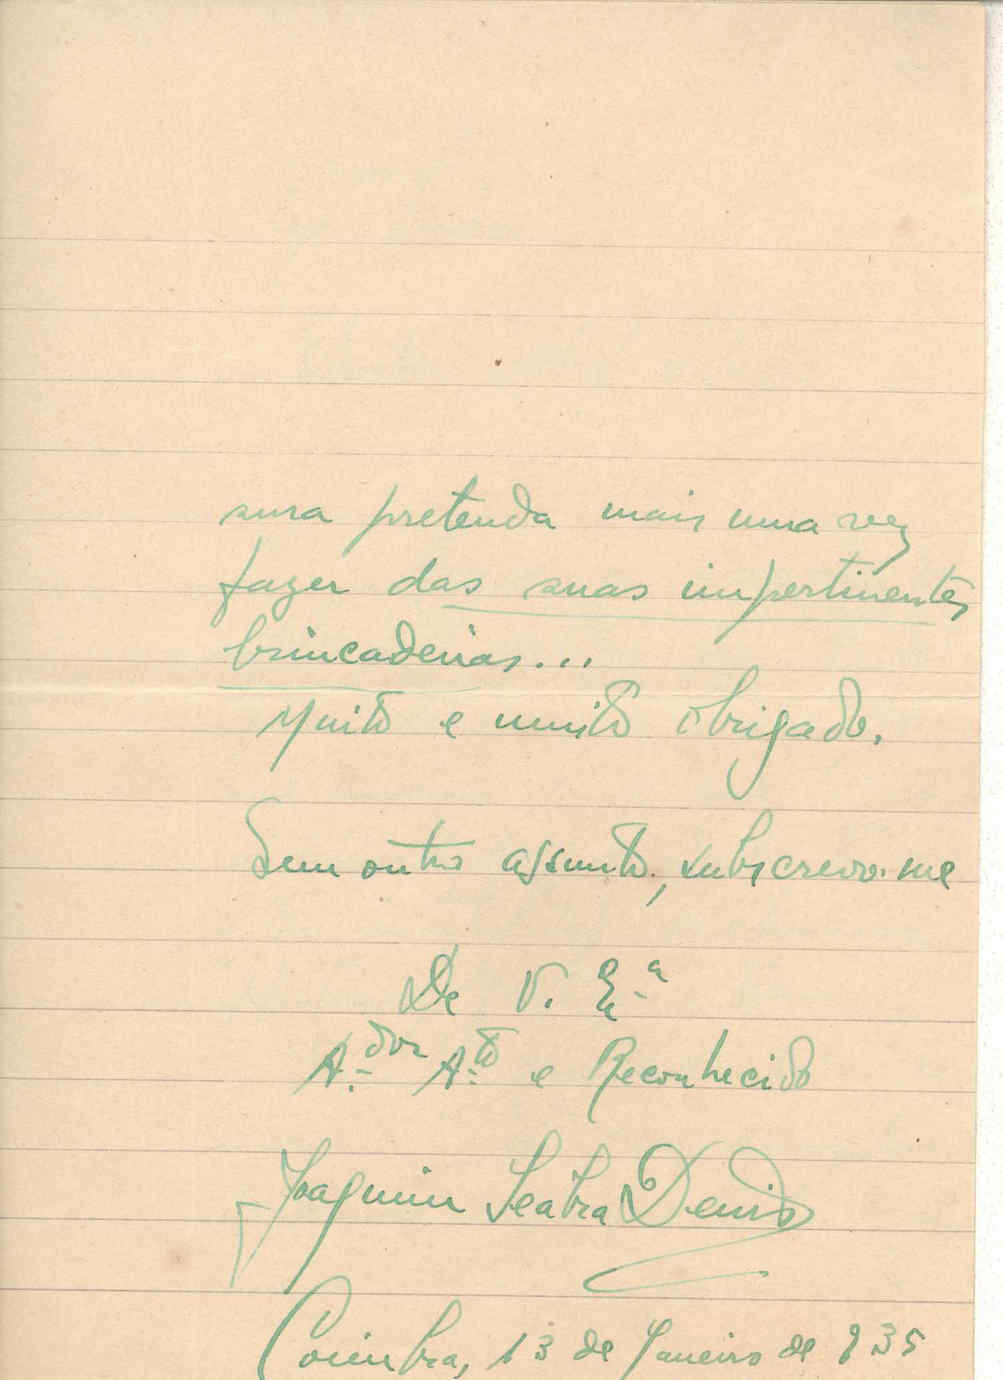 sura pretenda mais uma vez
fazer das suas impertinentes
brincadeiras...
Muito e muito obrigado.
Sem outro assunto, subscrevo-me
De V. Ex.ª
A.dor A.to e Reconhecido
Joaquim Seabra Denis
Coimbra, 13 de Janeiro de 935